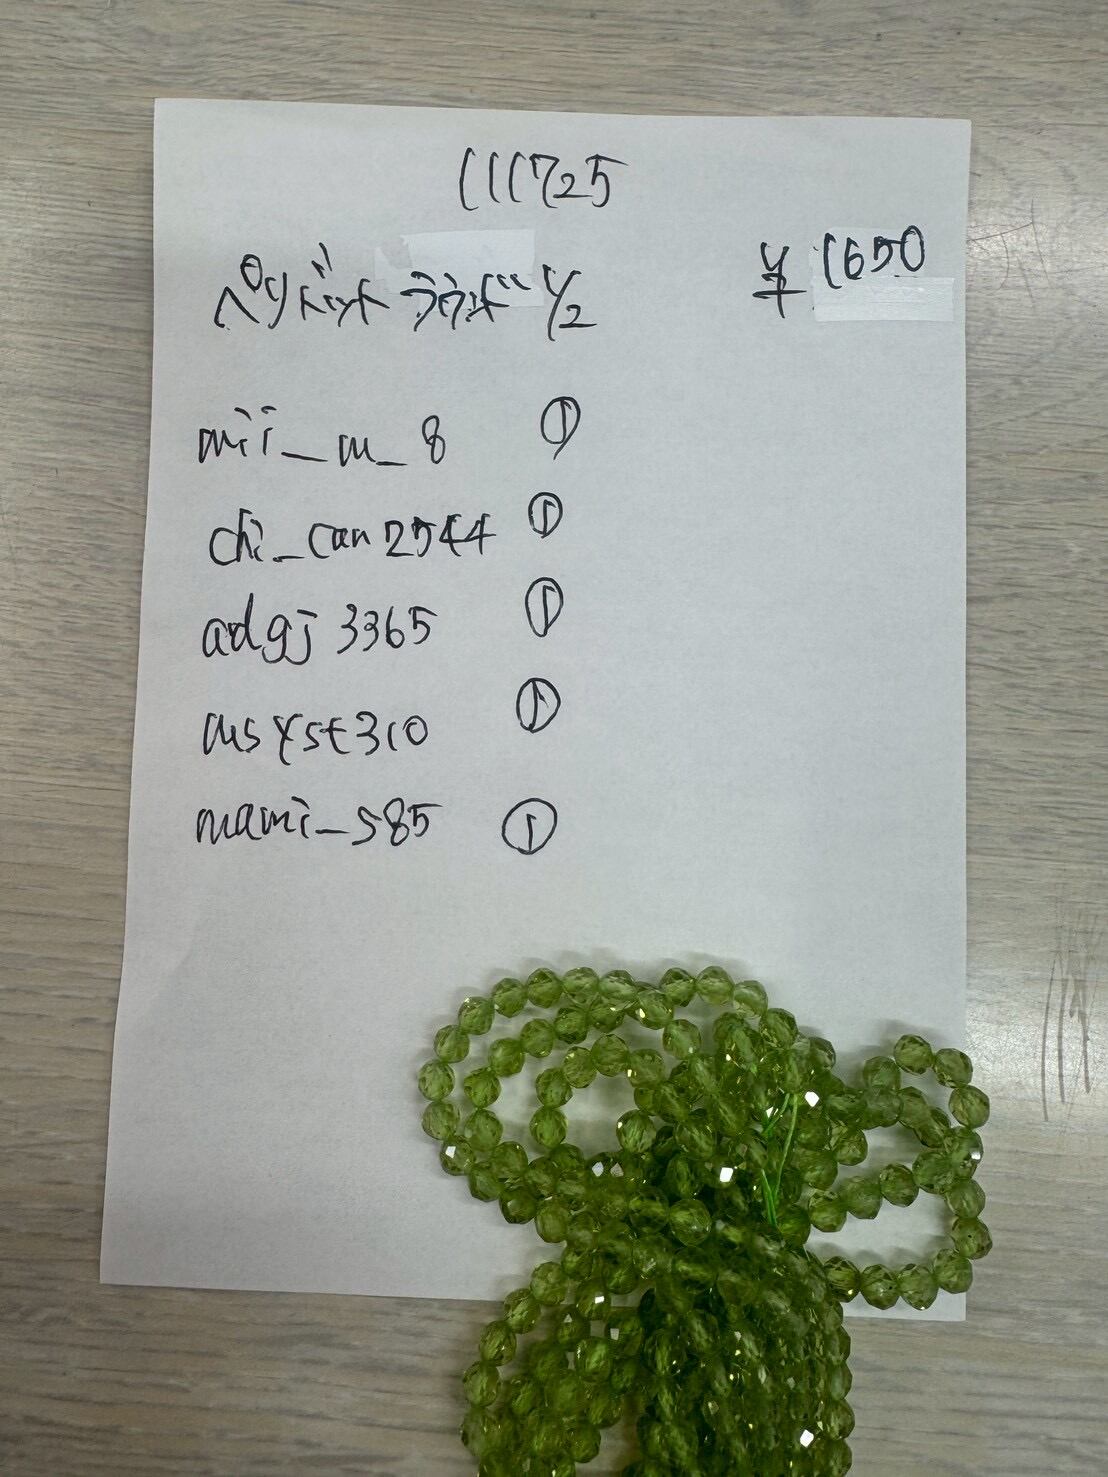 111725
ペリドット ラウンド 1/2 ¥1650
mii_m_8 ①
chi_can2544 ①
adgj3365 ①
msyst310 ①
mami_s85 ①